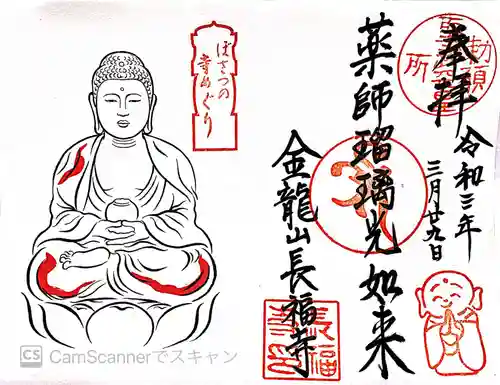 奉拝
令和三年
三月廿九日
薬師瑠璃光如来
金龍山長福寺
勅願
所
長福
ぼさつの
寺めぐり
CS CamScannerでスキャン